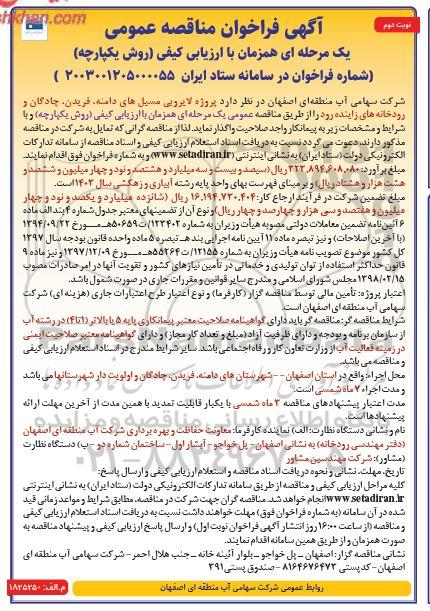 نوبت دوم
آگهی فراخوان مناقصه عمومی
یک مرحله ای همزمان با ارزیابی کیفی (روش یکپارچه)
(شماره فراخوان در سامانه ستاد ایران ۲۰۰۳۰۰۱۲۰۵۰۰۰۰۵۵ )
شرکت سهامی آب منطقه‌ای اصفهان در نظر دارد پروژه لایروبی مسیل های دامنه، فریدن، چادگان و
رودخانه های زاینده رود را از طریق مناقصه عمومی یک مرحله ای همزمان با ارزیابی کیفی (روش یکپارچه) و با
شرایط و مشخصات زیر به پیمانکار واجد صلاحیت واگذار نماید. لذا از مناقصه گرانی که تمایل به شرکت در مناقصه
مذکور دارند، دعوت می گردد نسبت به دریافت اسناد استعلام ارزیابی کیفی و اسناد مناقصه از سامانه تدارکات
الکترونیکی دولت (ستاد ایران) به نشانی اینترنتی (www.setadiran.ir) و به شماره فراخوان فوق اقدام نمایند.
مبلغ برآورد: ۳۲۳،۸۹۴،۶۰۸،۰۸۰ ریال (سیصد و بیست و سه میلیارد و هشتصد و نود و چهار میلیون و ششصد و
هشت هزار و هشتاد ریال) و بر مبنای فهرست بهای واحد پایه رشته آبیاری و زهکشی سال ۱۴۰۳ است.
مبلغ تضمین شرکت در فرآیند ارجاع کار: ۱۶،۱۹۴،۷۳۰،۴۰۴ ریال (شانزده میلیارد و یکصد و نود و چهار
میلیون و هفتصد و سی هزار و چهارصد و چهار ریال) و نوع آن از تضمینهای معتبر جدول شماره ۴ بند الف ماده
۶ آئین‌نامه تضمین معاملات دولتی مصوبه هیأت وزیران به شماره ۱۲۳۴۰۲/ت۵۰۶۵۹هـ مـــورخ ۱۳۹۴/۰۹/۲۲
(با آخرین اصلاحات) و نیز تبصره ماده ۱۱ آیین نامه اجرایی بند هـ تبصره ۵ ماده واحده قانون بودجه سال ۱۳۹۷
کل کشور موضوع تصویب نامه هیأت وزیران به شماره ۱۲۱۵۵/ت۵۵۲۶۴هـ مــورخ ۱۳۹۷/۰۲/۰۹ و نیز ماده ۹
قانون حداکثر استفاده از توان تولیدی و خدماتی در تأمین نیازهای کشور و تقویت آنها در امر صادرات مصوب
۱۳۹۸/۰۲/۱۵ مجلس شورای اسلامی و مندرج سایر قوانین و مقررات جاری در صورت شمول باشد.
اعتبار پروژه: تأمین مالی توسط مناقصه گزار (کارفرما) و نوع اعتبار طرح اعتبارات جاری (هزینه ای) شرکت
سهامی آب منطقه ای اصفهان است.
شرایط مناقصه گر: مناقصه گر باید دارای گواهینامه صلاحیت معتبر پیمانکاری پایه ۵ یا بالاتر (۱ تا ۴) در رشته آب
از سازمان برنامه و بودجه و دارای ظرفیت آزاد (مبلغ و تعداد کار مجاز) و دارای گواهینامه معتبر صلاحیت ایمنی
در زمینه فعالیت آب از وزارت تعاون کار و رفاه اجتماعی باشد. سایر شرایط مندرج در اسناد استعلام ارزیابی کیفی
و مناقصه می باشد.
محل اجراء: واقع در استان اصفهان -- شهرستان های دامنه، فریدن، چادگان و اولویت دار شهرستانها می باشد
و مدت اجراء ۷ ماه شمسی است.
مدت اعتبار پیشنهادهای مناقصه ۳ ماه شمسی با یکبار قابلیت تمدید با همین مدت از آخرین مهلت ارائه
پیشنهادها است.
نام و نشانی دستگاه نظارت: الف) نماینده کارفرما: معاونت حفاظت و بهره برداری شرکت آب منطقه ای اصفهان
(دفتر مهندسی رودخانه) به نشانی اصفهان - پل خواجو- آبشار اول - ساختمان شماره دو - ب) دستگاه نظارت
(مشاور): شرکت مهندسین مشاور
تاریخ، مهلت، نشانی و نحوه دریافت اسناد مناقصه و استعلام ارزیابی کیفی و ارسال پاسخ:
کلیه مراحل ارزیابی کیفی و مناقصه از طریق سامانه تدارکات الکترونیکی دولت (ستاد ایران) به نشانی اینترنتی
www.setadiran.ir انجام خواهد شد. مناقصه گران جهت شرکت در مناقصه، مطابق شرایط و مواعد زمانی قید
شده در آن سامانه (به شماره فراخوان فوق) مهلت خواهند داشت نسبت به دریافت اسناد استعلام ارزیابی کیفی
و مناقصه (از ساعت ۱۶:۰۰ روز انتشار آگهی فراخوان نوبت اول) و ارسال پاسخ ارزیابی کیفی و پیشنهاد مناقصه به
صورت همزمان و از طریق همین سامانه اقدام نمایند.
نشانی مناقصه گزار: اصفهان - پل خواجو - بلوار آئینه خانه - جنب هلال احمر - شرکت سهامی آب منطقه ای
اصفهان - کدپستی ۸۱۶۴۶۷۶۴۷۳ - صندوق پستی ۳۹۱
روابط عمومی شرکت سهامی آب منطقه ای اصفهان
م.الف: ۱۸۲۵۲۵۰